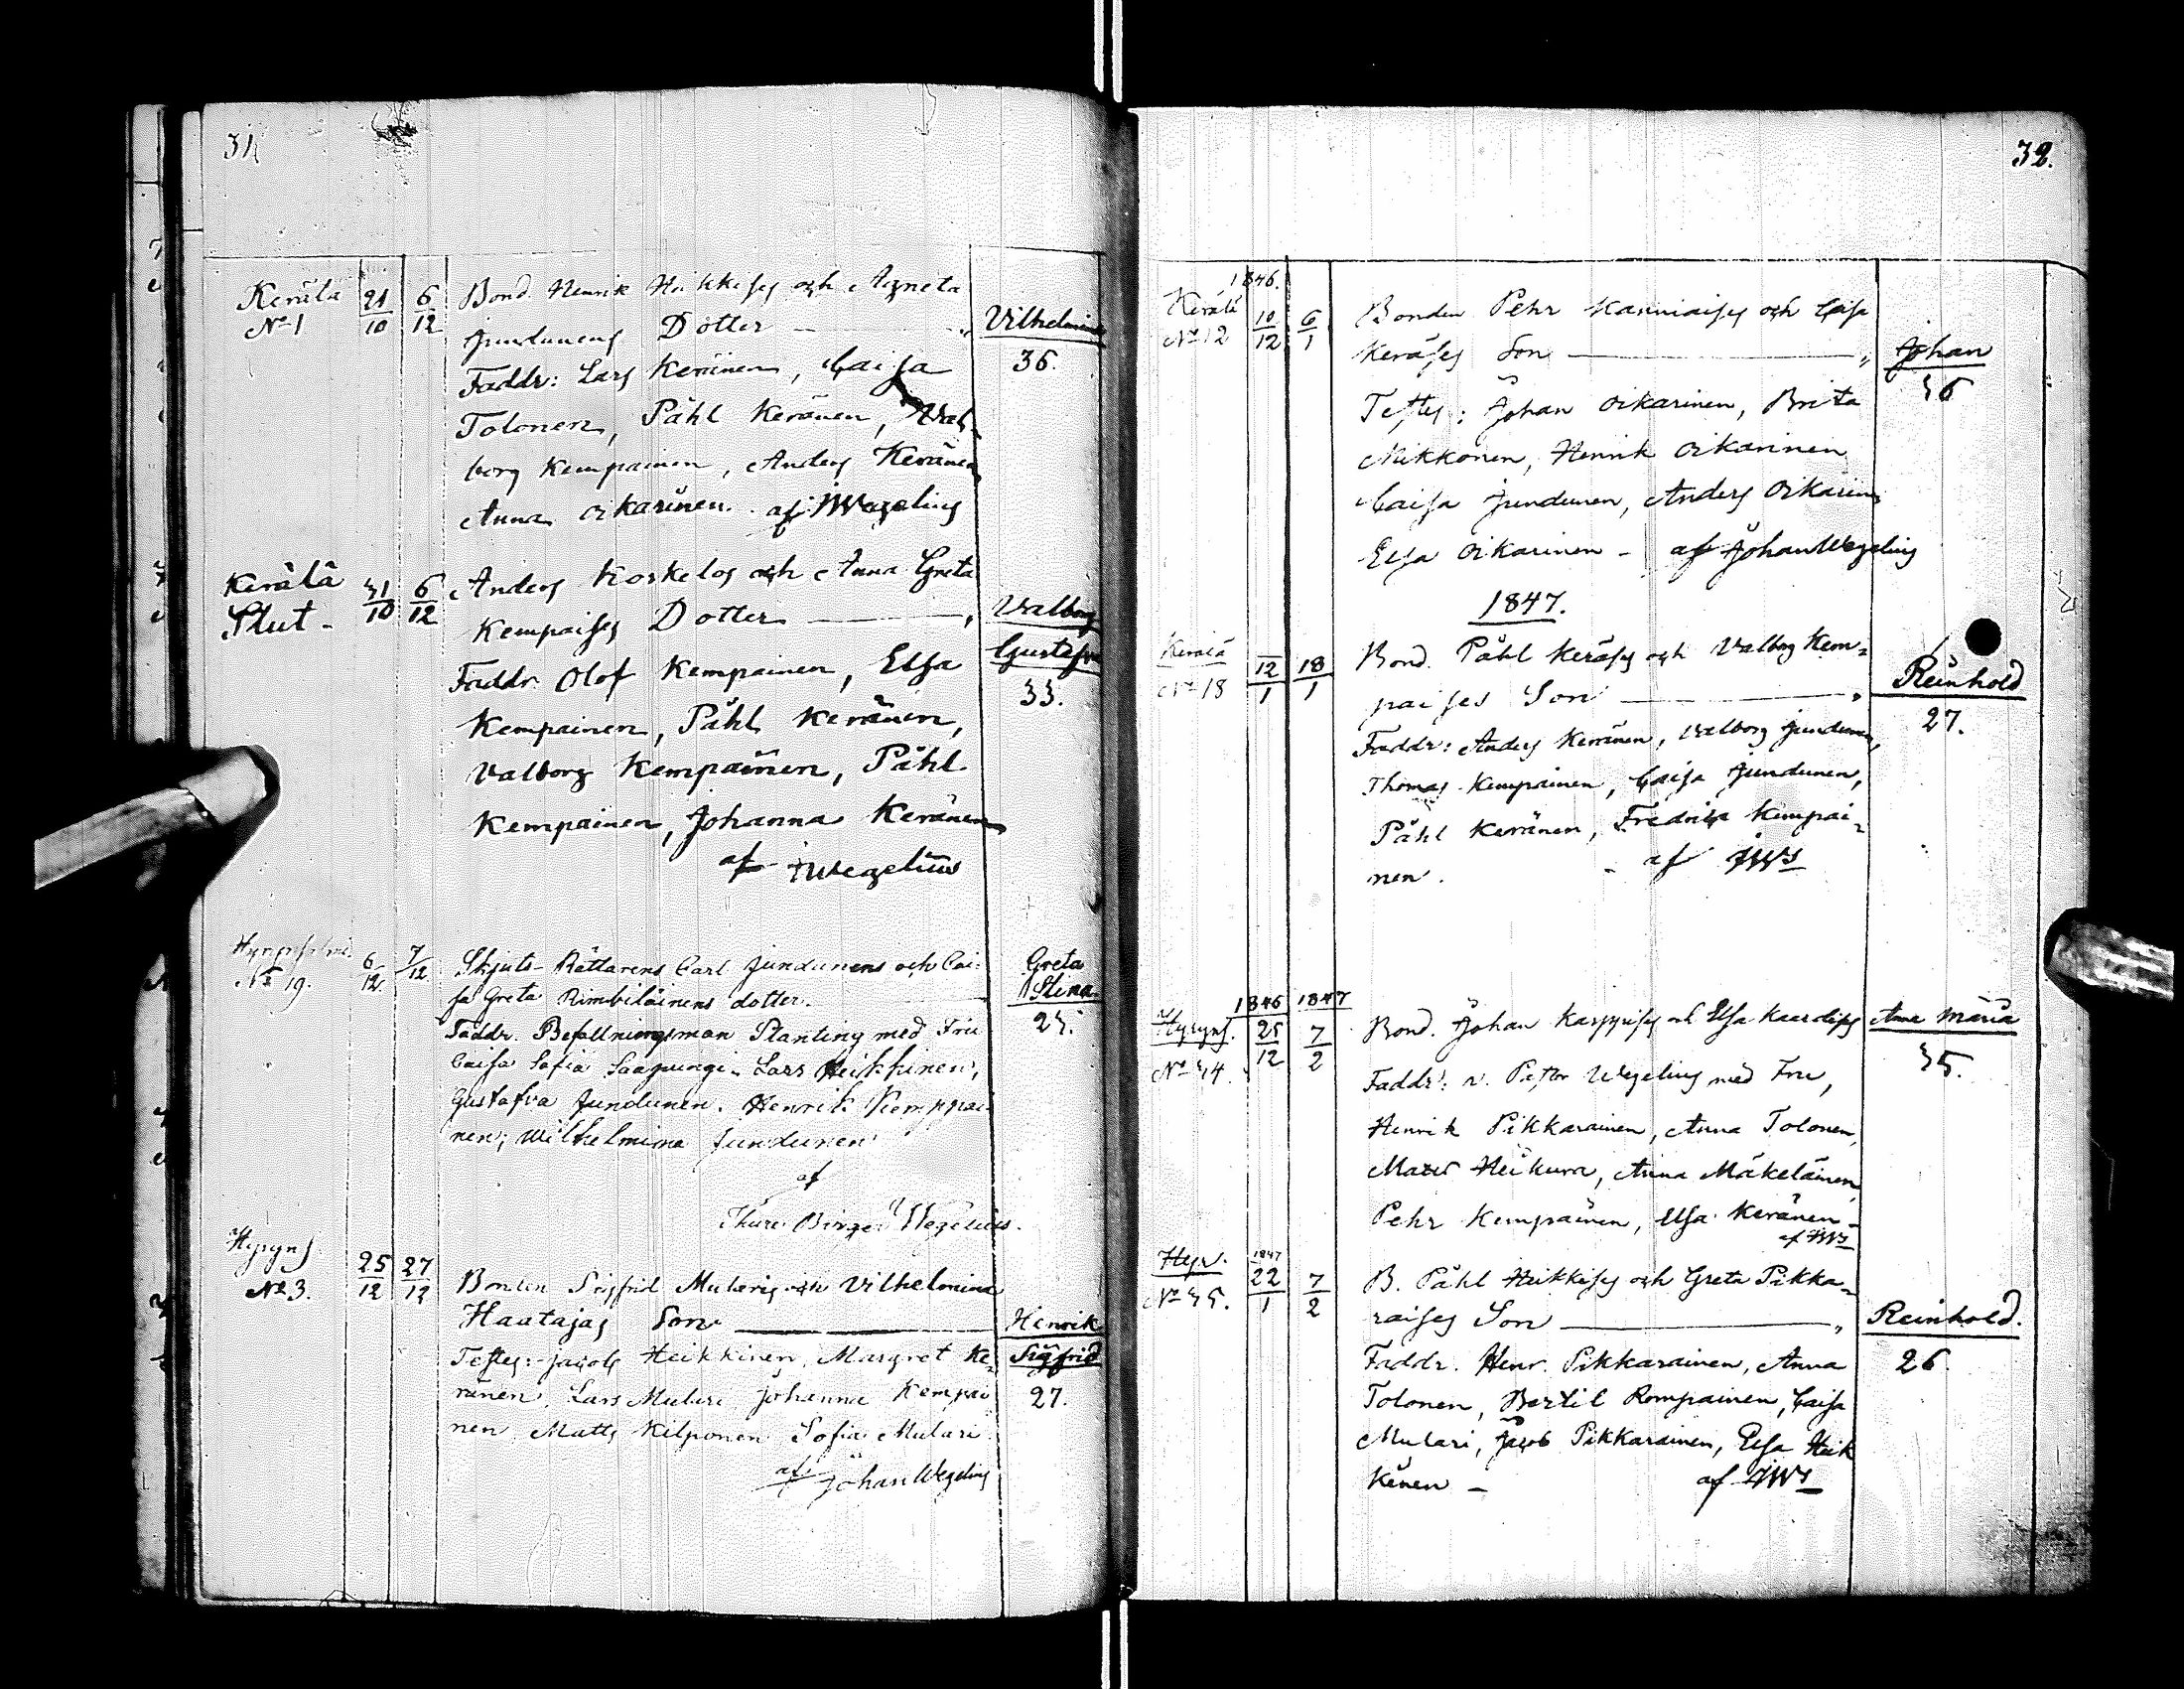 31
Kerälä
No 1
21/10
6/12
Bond. Henrik Heikkises och Agneta
Jundunens Dotter — "
Vilhelmina
Faddr: Lars Keränen, Caisa
36.
Tolonen, Påhl Keränen, Wal-
borg Kempainen, Anders Keränen
Anna Oikarinen. af JWegelius
Kerälä
Slut -
31/10
6/12
Anders Koskelos och Anna Greta
Kempaises Dotter — "
Valborg
Gustafva
33.
Faddr. Olof Kempainen, Elsa
Kempainen, Påhl Keränen,
Valborg Kempainen, Påhl
Kempainen, Johanna Keränen
af JWegelius
No 19.
6/12
7/12
Skjuts-Rättarens Carl Jundunens och Cai-
sa Greta Rimbiläinens dotter.
Greta
Stina
Faddr. Befallningsman Planting med Fru
Caisa Sofia Saapungi. Lars Heikkinen,
Gustafva Jundunen. Henrik Kemppai-
nen; Wilhelmina Jundunen
af
Thure Birger Wegelius.
Hyryns
No 3.
25/12
27/12
Bonden Sigfrid Mularis och Vilhelmina
Haatajas Son —
Henrik
Sigfrid
27.
Testes: Jacob Heikkinen, Margret Ke-
ränen, Lars Mulari Johanna Kempai
nen Matts Kilponen Sofia Mulari
af Johan Wegelius
32.
1846.
Kerälä
No 12
10/12
6/1
Bonden Pehr Kanniaises och Caisa
Keräses Son — "
Johan
36
Testes: Johan Oikarinen, Brita
Mikkonen, Henrik Oikarinen
Caisa Jundunen, Anders Oikarinen
Elsa Oikarinen - af Johan Wegelius
1847.
Kerälä
No 18
12/1
18/1
Bond. Påhl Keräses och Valborg Kem-
paises Son — "
Reinhold
27.
Faddr: Anders Keränen, Valborg Jundunen,
Thomas Kempainen, Caisa Jundunen,
Påhl Keränen, Fredrika Kempai-
nen. - af JWs
1846 1847
Hyryns.
No 34.
25/12
7/2
Bond. Johan Karppises och Elsa
Anna Maria
35.
Faddr: v. Pastor Wegelius med Fru,
Henrik Pikkarainen, Anna Tolonen,
Matts Heikura, Anna Mäkeläinen,
Pehr Kempainen, Elsa Keränen -
af JWs
Hyr.
No 35.
1847
22/1
7/2
B. Påhl Heikkises och Greta Pikka-
raises Son — "
Reinhold.
26
Faddr. Henr. Pikkarainen, Anna
Tolonen, Bertil Rompainen, Caisa
Mulari, Jacob Pikkarainen, Elsa Heik
kinen - af JWs